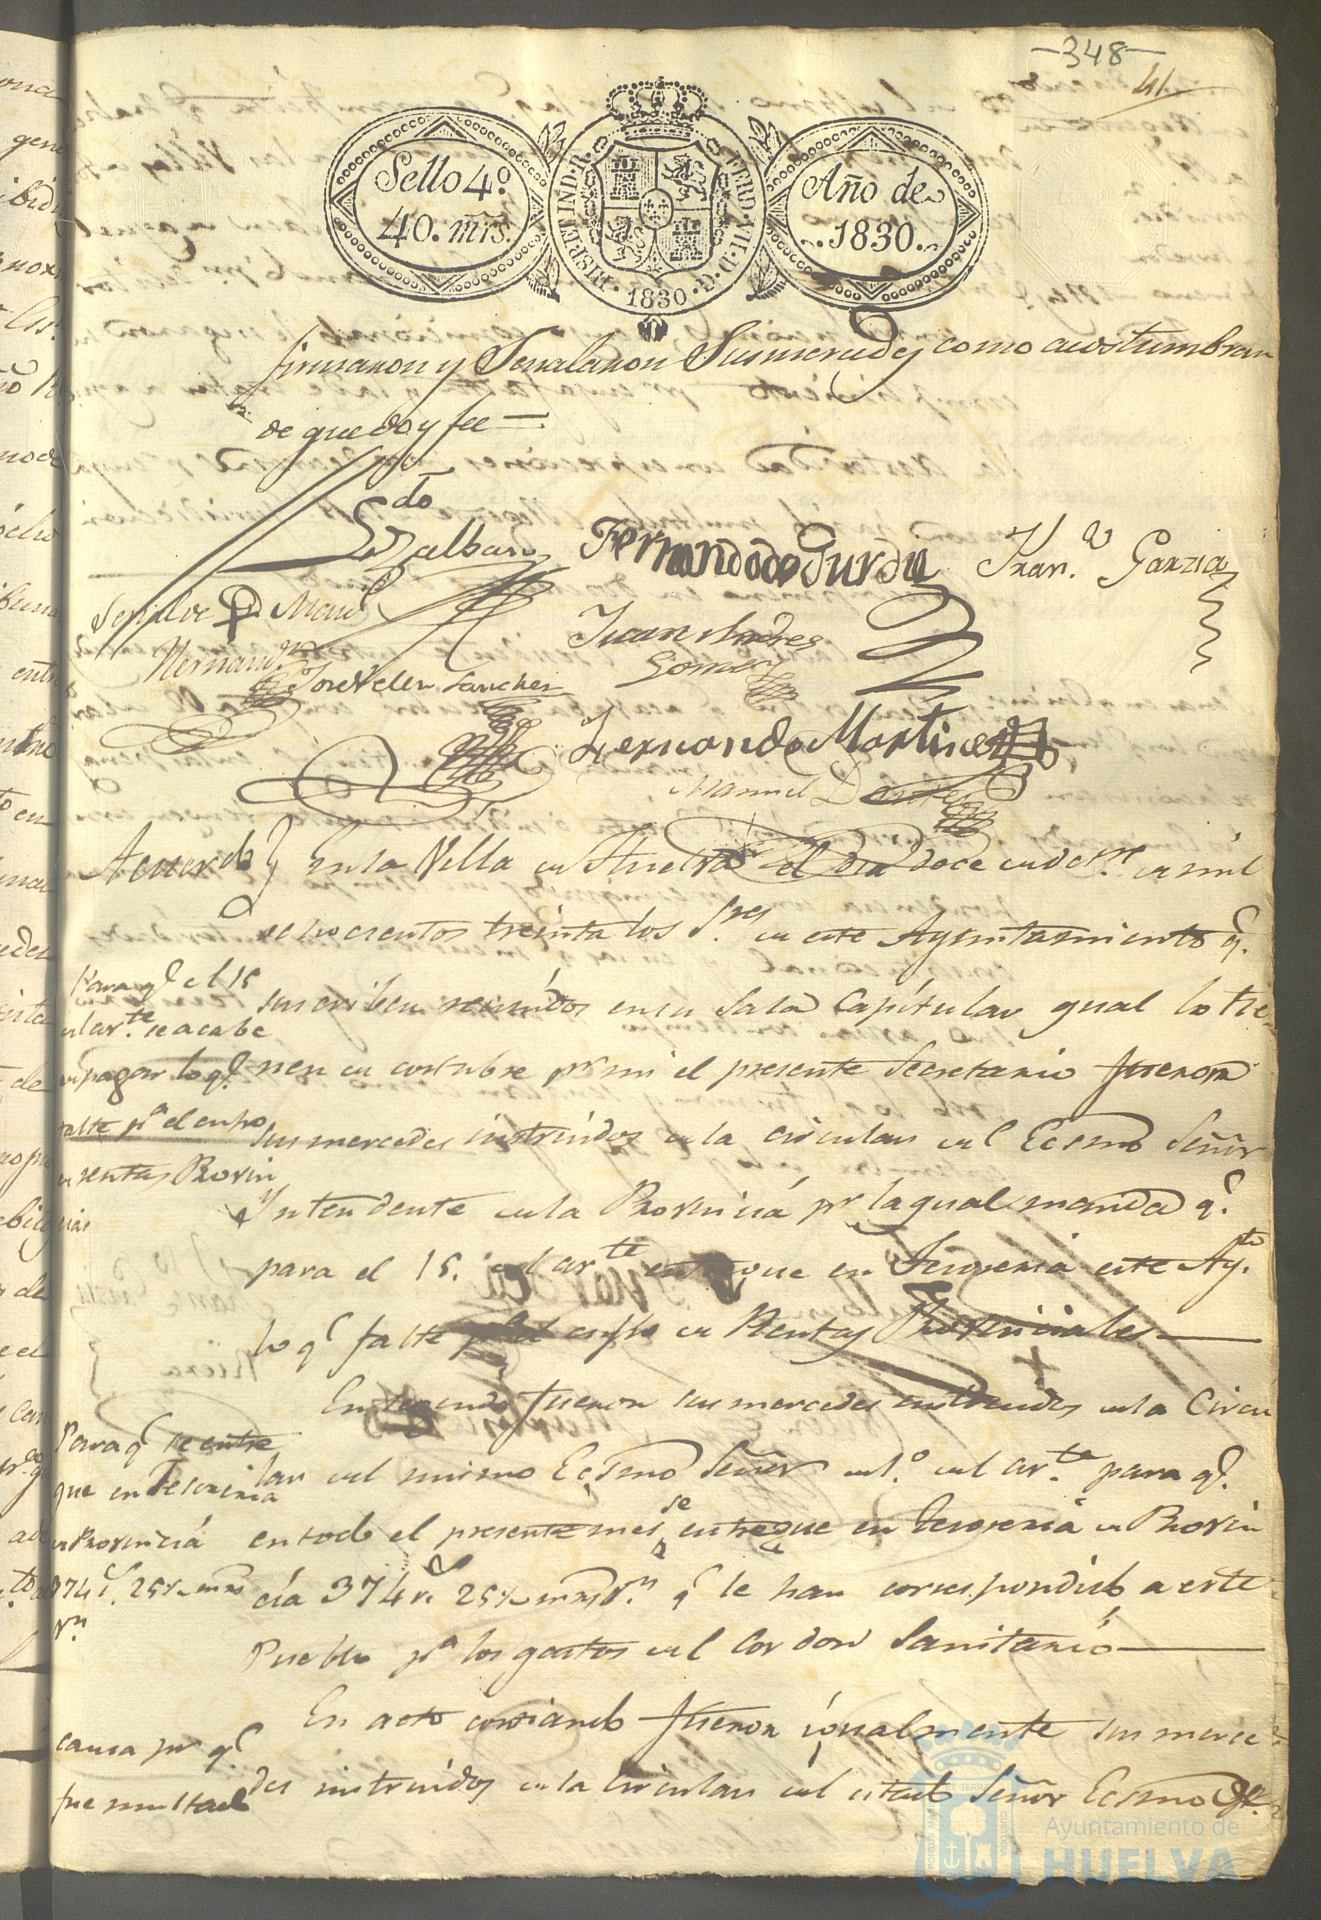 -348-
41.
Sello 4º
40. mrs.
HISP. ET IND. R.
FERD. VII. D. G.
1830
Año de
1830.
firmaron y Señalaron Susmercedes como acostumbran
de que doy fee =
Ldo
Zalbar
Fernando de
Fran.co Garzia
Juan Andres
Gomez
Hernand
Jose Velez Sanchez
Fernando Martinez
Manuel
Acuerdo } En la Villa de Huelva el dia doce de de mil
ochocientos treinta los S.res de este Ayuntamiento q.e
Para q.e el 15
del cor.te se acabe
de pagar lo q.e
falte pª el cupo
de rentas Provin
ciales
suscriben reunidos en su Sala Capitular qual lo tie-
nen de costumbre pr mi el presente Secretario fueron
sus mercedes instruidos de la circular del Ecsmo Señor
Yntendente de la Provincia pr la qual manda q.e
para el 15. del cor.te entregue en Tesoreria este Ay.to
lo q.e falte cupo de Rentas Provinciales
En seguida fueron sus mercedes instruidos de la Circu
Para q.e se entre
que en Tesoreria
de Provincia
374 r.s 25 mrs
v.n
lar del mismo Ecsmo Señor del cor.te para q.e
en todo el presente mes se entregue en Tesoreria de Provin
cia 374 r.s 25 mrs v.n q.e le han correspondido a este
Pueblo pª los gastos del Cordon Sanitario
causa pr q.e
fue multado
En acto continuo fueron igualmente sus merce-
des instruidos de la Circular del citado Señor Ecsmo
Ayuntamiento de
HUELVA